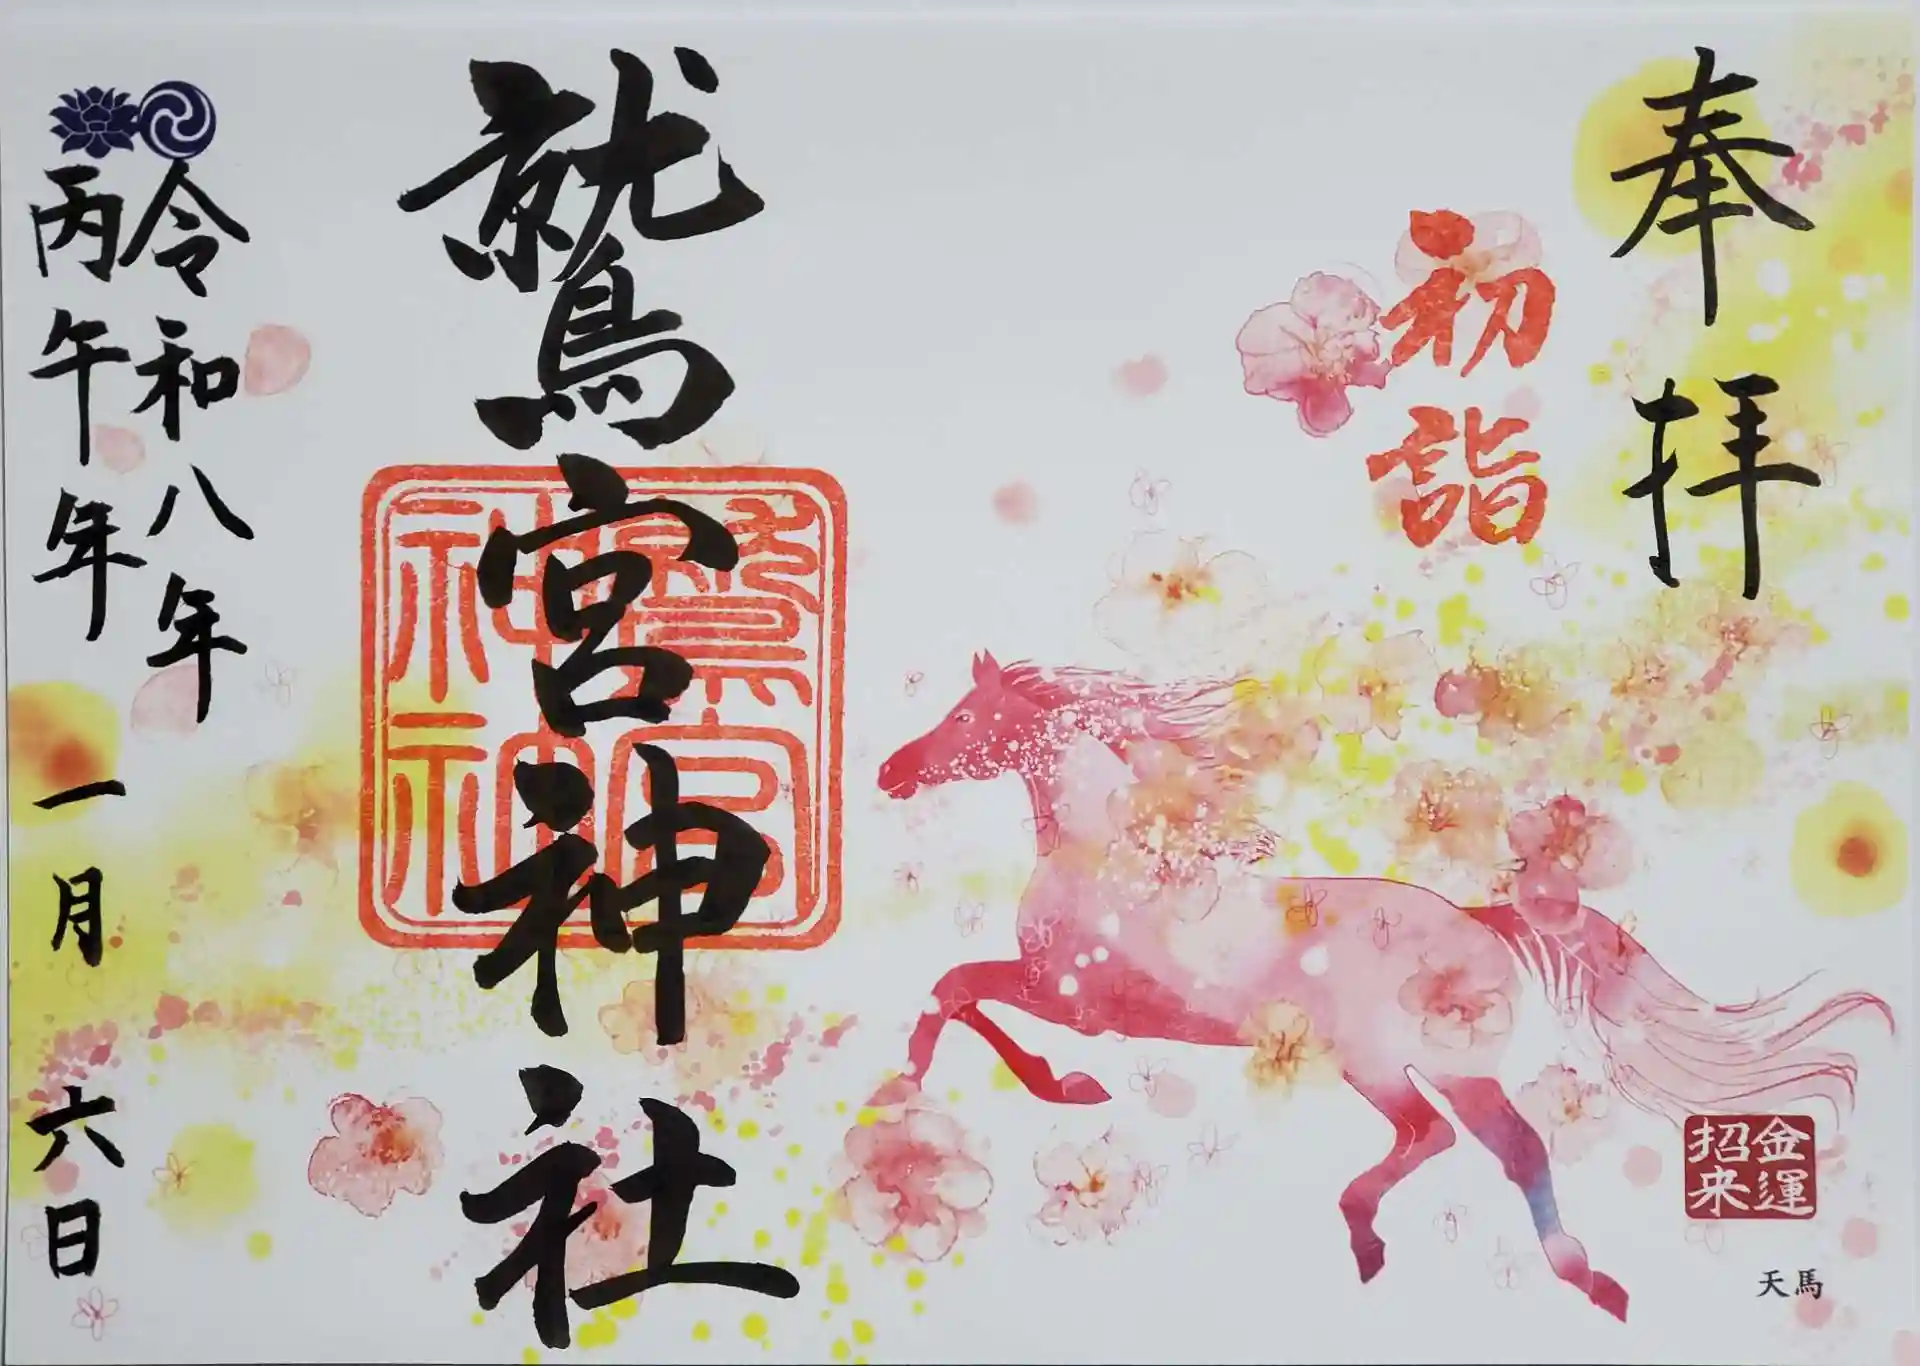 奉拝
初詣
金運
招来
天馬
鷲宮神社
鷲宮
神社
令和八年
丙午年 一月 六日